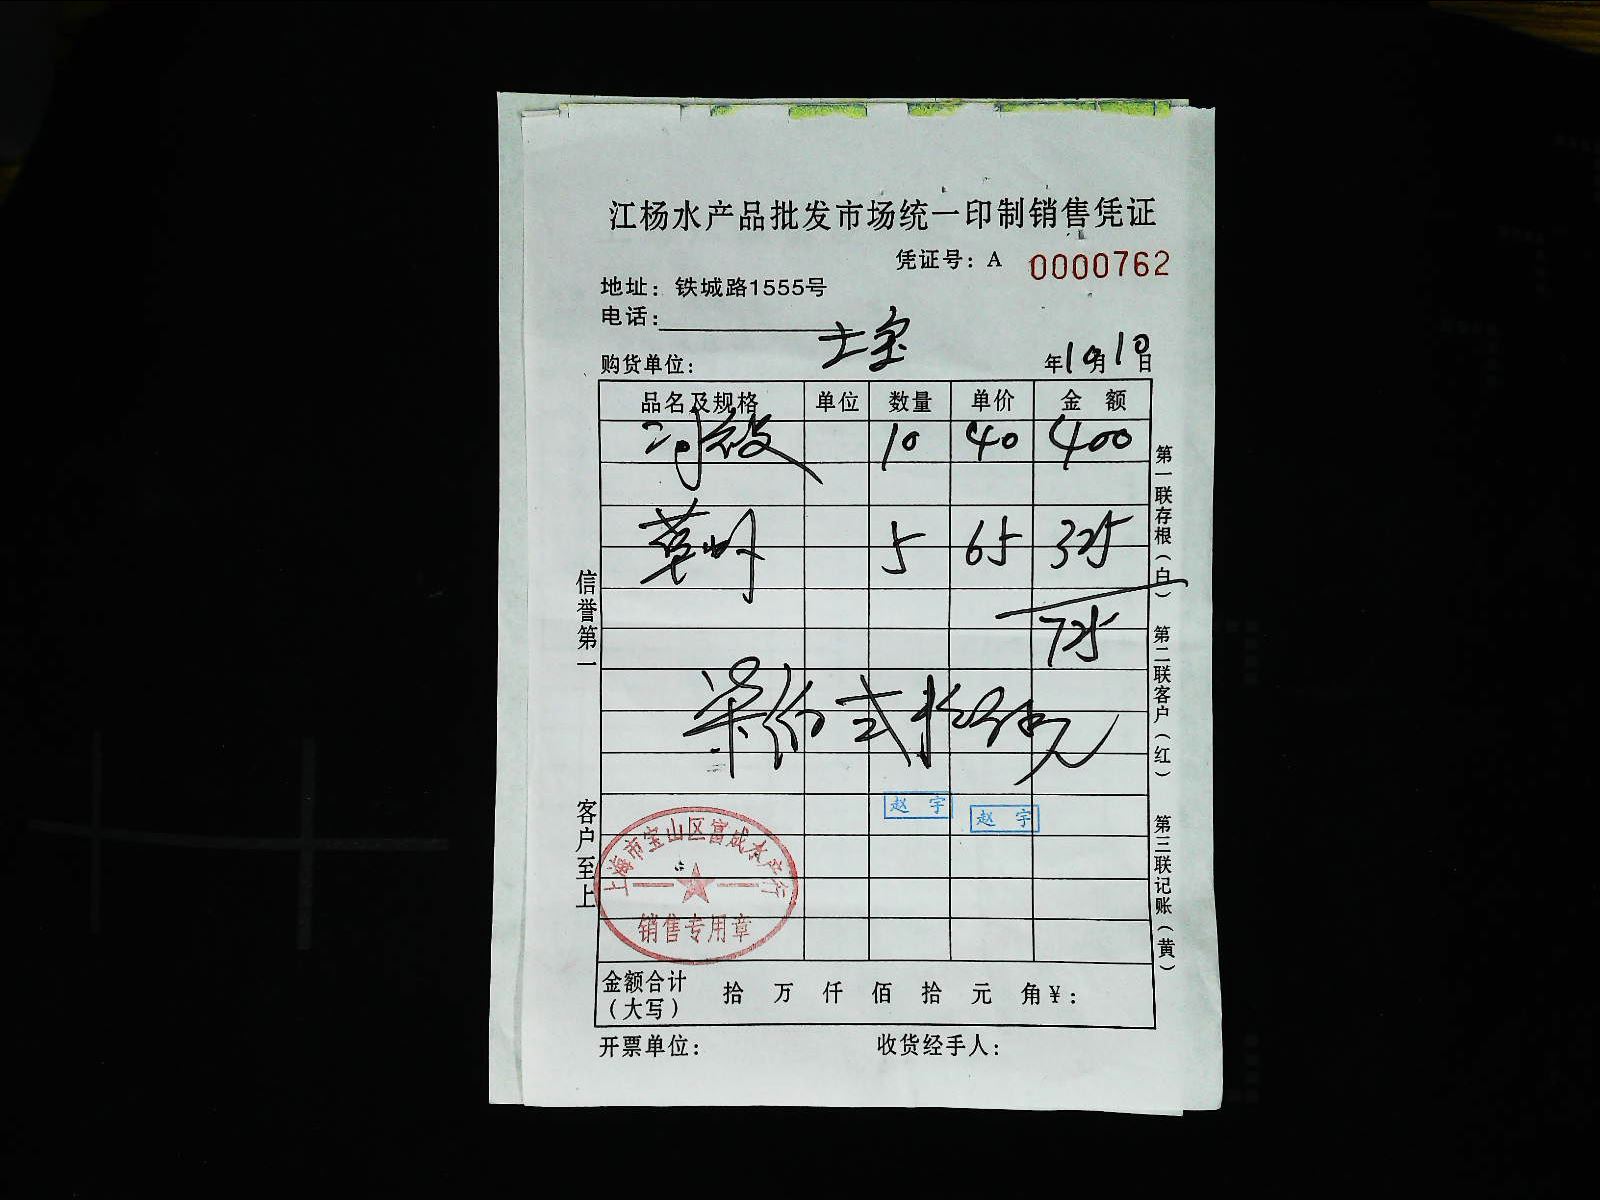 江杨水产品批发市场统一印制销售凭证
凭证号：A 0000762
地址：铁城路1555号
电话：
购货单位：士宝
年10月10日
品名及规格 单位 数量 单价 金额
10 40 400
草虾 5 65 325
725
柒佰弍拾伍元
赵宇
赵宇
上海市宝山区富成水产行
销售专用章
金额合计（大写） 拾 万 仟 佰 拾 元 角 ¥：
开票单位： 收货经手人：
信誉第一
客户至上
第一联存根（白）
第二联客户（红）
第三联记账（黄）